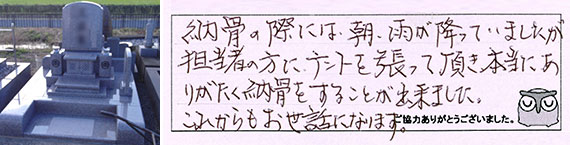 納骨の際には、朝、雨が降っていましたが
担当者の方に、テントを張って頂き、本当にあ
りがたく納骨をすることが出来ました。
これからもお世話になります。
ご協力ありがとうございました。